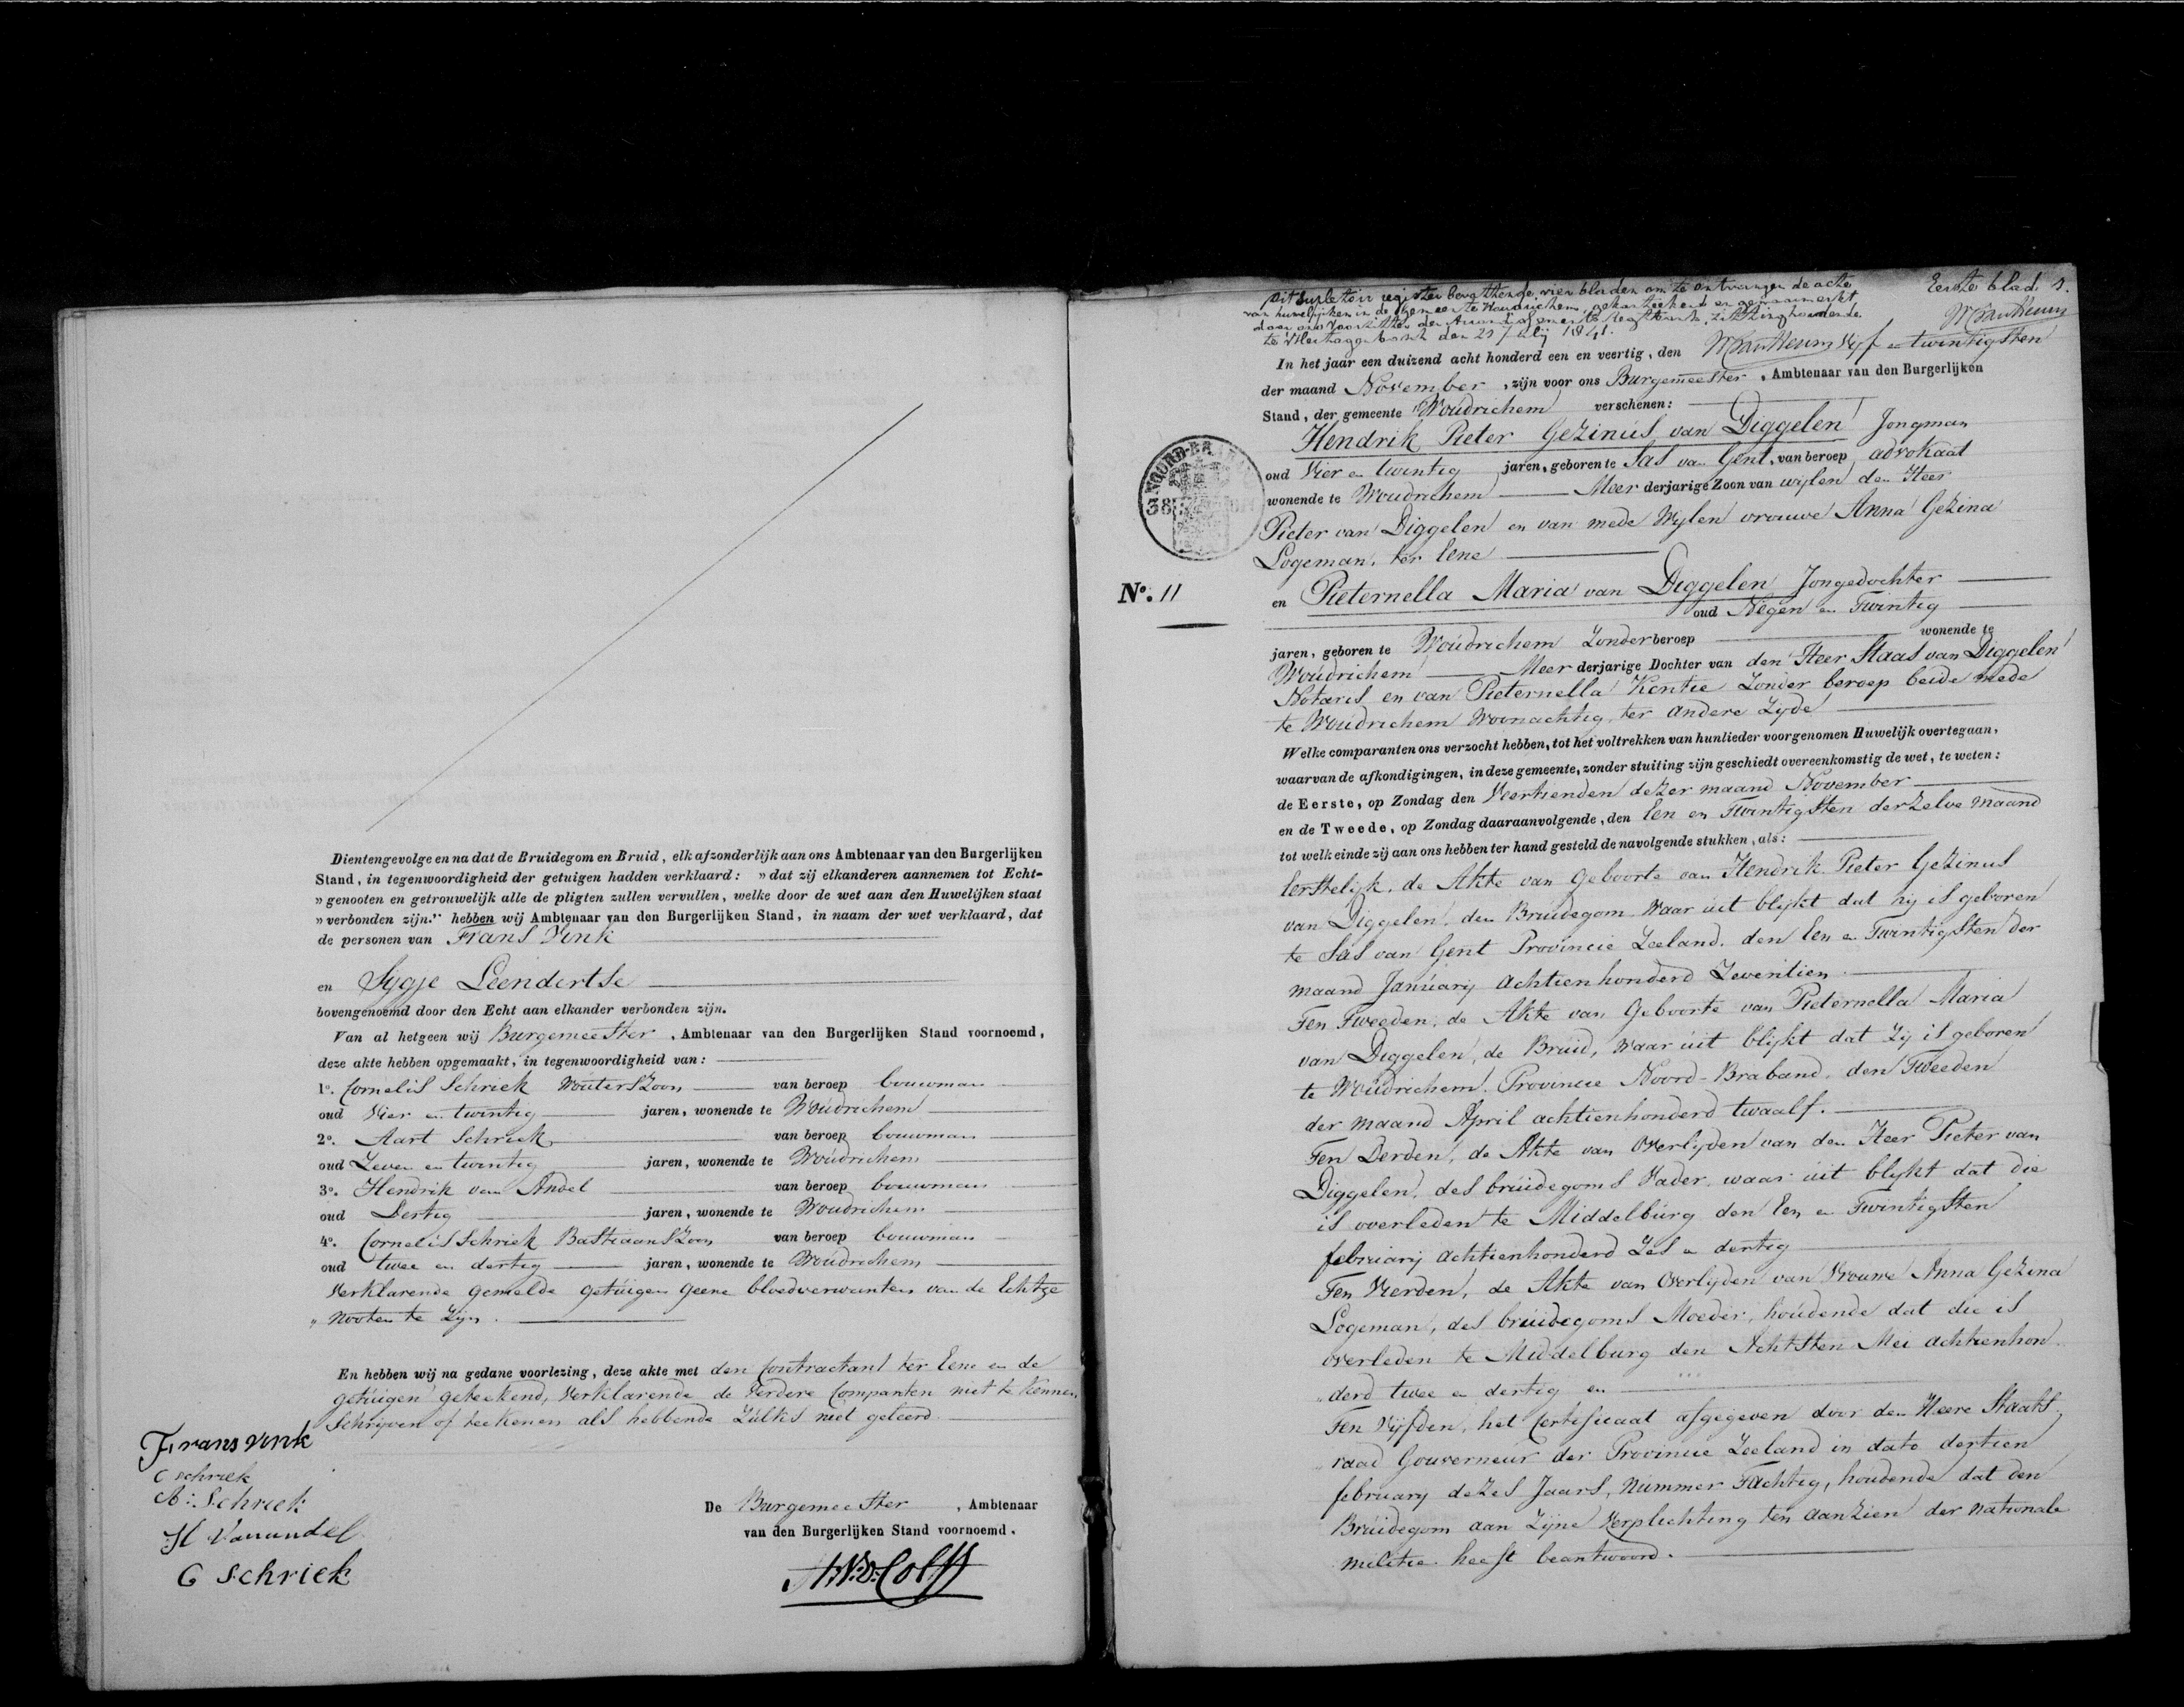 Dientengevolge en na dat de Bruidegom en Bruid, elk afzonderlijk aan ons Ambtenaar van den Burgerlijken
Stand, in tegenwoordigheid der getuigen hadden verklaard: „dat zij elkanderen aannemen tot Echt-
„genooten en getrouwelijk alle de pligten zullen vervullen, welke door de wet aan den Huwelijken staat
„verbonden zijn." hebben wij Ambtenaar van den Burgerlijken Stand, in naam der wet verklaard, dat
de personen van Frans Vink
en Sygje Leendertse
bovengenoemd door den Echt aan elkander verbonden zijn.
Van al hetgeen wij Burgemeester, Ambtenaar van den Burgerlijken Stand voornoemd,
deze akte hebben opgemaakt, in tegenwoordigheid van:
1º. Cornelis Schriek Wouterszoon van beroep bouwman
oud Vier en twintig jaren, wonende te Woudrichem
2º. Aart Schriek van beroep bouwman
oud Zeven en twintig jaren, wonende te Woudrichem
3º. Hendrik van Andel van beroep bouwman
oud Dertig jaren, wonende te Woudrichem
4º. Cornelis Schriek Bastiaanszoon van beroep bouwman
oud twee en dertig jaren, wonende te Woudrichem
Verklarende gemelde getuigen geene bloedverwanten van de Echtge
„nooten te zijn.
En hebben wij na gedane voorlezing, deze akte met den Contractant ter Eene en de
getuigen geteekend, Verklarende de Verdere Companten niet te kennen
Schrijven of teekenen als hebbende Zulks niet geleerd.
Frans Vink
C Schriek
A: Schriek
H Vanandel
C Schriek
De Burgemeester, Ambtenaar
van den Burgerlijken Stand voornoemd.
Eerste blad
Dit supletoir register bevattende vier bladen om te ontvangen de acte
van huwelijken in de Gemeente Woudrichem, gekantteekend en gewaarmerkt
door ons Voorzitter der Arrondissements Regtbank, zitting houdende
te 's Hertogenbosch den 21 July 1841.
In het jaar een duizend acht honderd een en veertig, den Vijf en twintigsten
der maand November, zijn voor ons Burgemeester, Ambtenaar van den Burgerlijken
Stand, der gemeente Woudrichem verschenen:
Hendrik Pieter Gezinus van Diggelen Jongman
oud Vier en twintig jaren, geboren te Sas van Gent, van beroep advokaat
wonende te Woudrichem Meer derjarige Zoon van wijlen den Heer
Pieter van Diggelen en van mede Wijlen vrouwe Anna Gezina
Logeman, ter Eene
Nº. 11
en Pieternella Maria van Diggelen Jongedochter
oud Negen en Twintig
jaren, geboren te Woudrichem Zonder beroep wonende te
Woudrichem Meer derjarige Dochter van den Heer Staas van Diggelen
Notaris en van Pieternella Kentie Zonder beroep beide mede
te Woudrichem Woonachtig ter andere Zyde
Welke comparanten ons verzocht hebben, tot het voltrekken van hunlieder voorgenomen Huwelijk overtegaan,
waarvan de afkondigingen, in deze gemeente, zonder stuiting zijn geschiedt overeenkomstig de wet, te weten:
de Eerste, op Zondag den Veertienden dezer maand November
en de Tweede, op Zondag daaraanvolgende, den Een en Twintigsten derzelve maand
tot welk einde zij aan ons hebben ter hand gesteld de navolgende stukken, als:
Eerstelijk, de Akte van Geboorte van Hendrik Pieter Gezinus
van Diggelen, den Bruidegom Waar uit blijkt dat hij is geboren
te Sas van Gent Provincie Zeeland, den Een en Twintigsten der
maand January Achttienhonderd Zeventien.
Ten Tweeden, de Akte van Geboorte van Pieternella Maria
van Diggelen, de Bruid, Waar uit blijkt dat Zij is geboren
te Woudrichem, Provincie Noord-Braband, den Tweeden
der maand April achttienhonderd twaalf.
Ten Derden, de Akte van Overlijden van den Heer Pieter van
Diggelen, des bruidegoms Vader, waar uit blijkt dat die
is overleden te Middelburg den Een en Twintigsten
february achttienhonderd Zes en dertig
Ten Vierden, de Akte van Overlijden van Vrouwe Anna Gezina
Logeman, des bruidegoms Moeder, houdende dat die is
overleden te Middelburg den Achtsten Mei achttienhon
„derd twee en dertig en
Ten Vijfden, het Certificaat afgegeven door den Heere Staats
„raad Gouverneur der Provincie Zeeland in dato dertien
february dezes Jaars, Nummer Tachtig, houdende dat den
Bruidegom aan Zijne Verplichting ten aanzien der Nationale
militie heeft beantwoord.